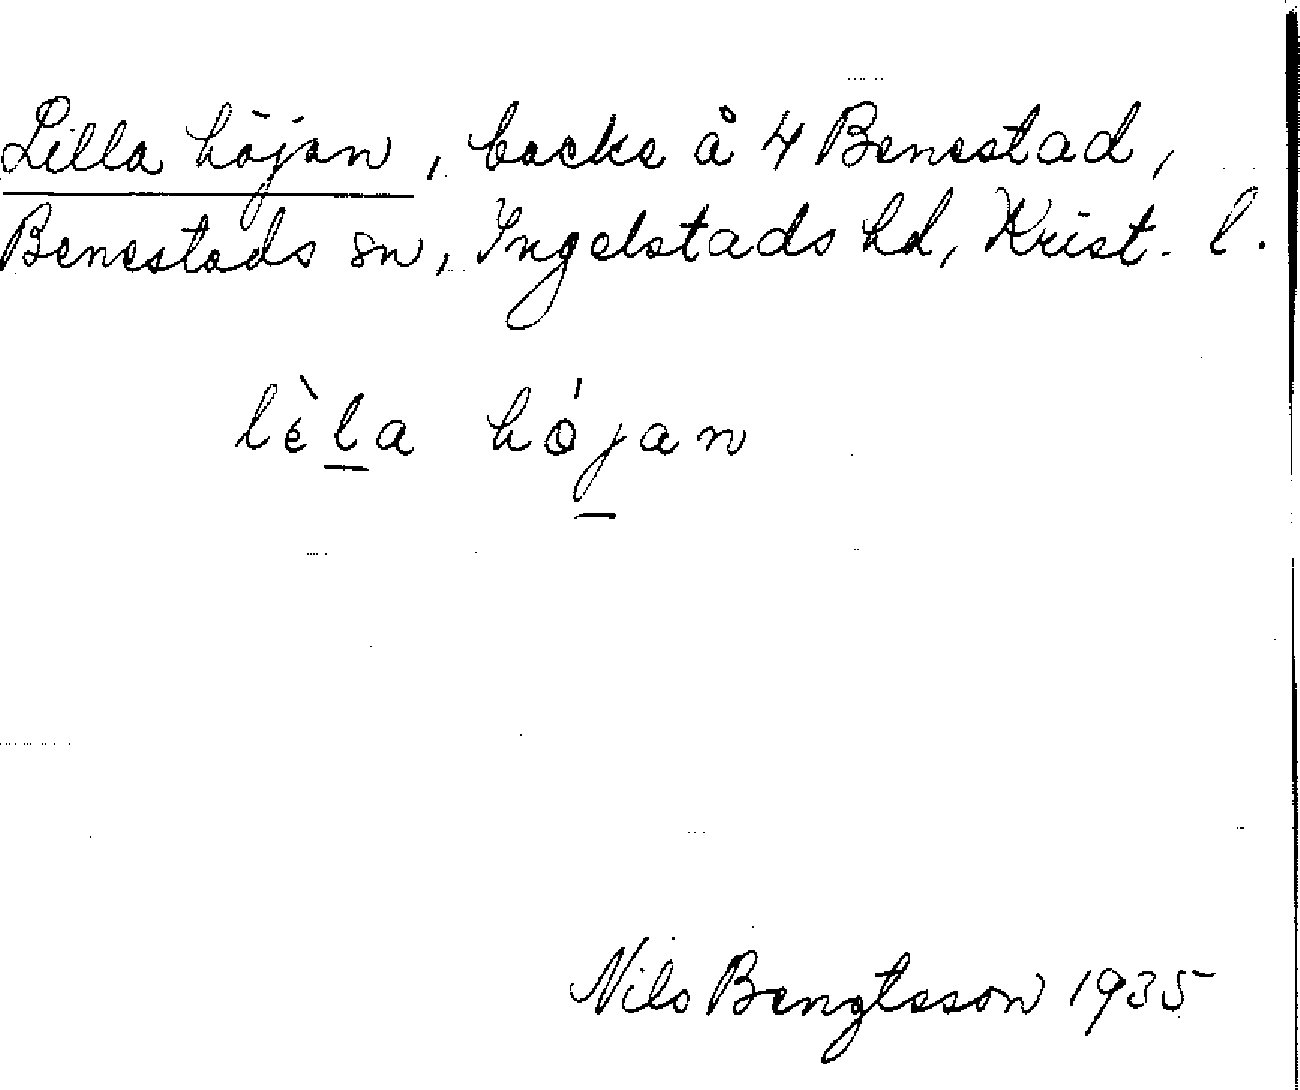 Lilla höjan, backe å 4 Benestad,
Benestads sn, Ingelstads hd, Krist. l.
lèla højan
Nils Bengtsson 1935